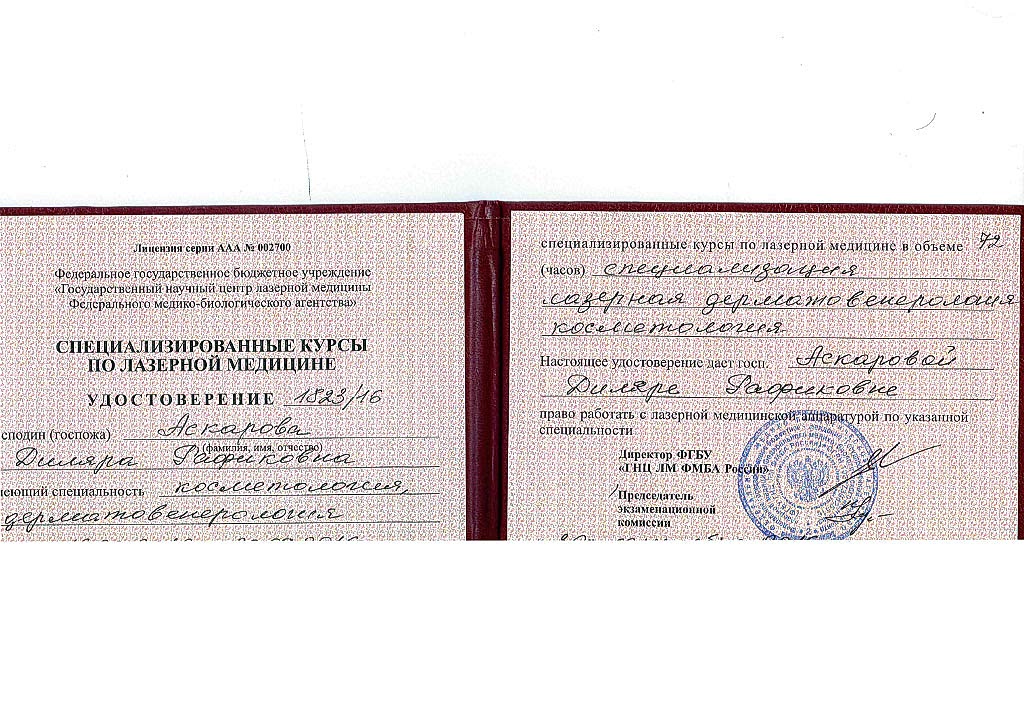 Лицензия серии ААА № 002700
Федеральное государственное бюджетное учреждение
«Государственный научный центр лазерной медицины
Федерального медико-биологического агентства»
СПЕЦИАЛИЗИРОВАННЫЕ КУРСЫ
ПО ЛАЗЕРНОЙ МЕДИЦИНЕ
УДОСТОВЕРЕНИЕ 1823/16
сподин (госпожа) Аскарова
(фамилия, имя, отчество)
Диляра Рафиковна
еющий специальность косметология,
дерматовенерология
специализированные курсы по лазерной медицине в объеме 72
(часов) специализация
лазерная дерматовенерология
косметология
Настоящее удостоверение дает госп. Аскаровой
Диляре Рафиковне
право работать с лазерной медицинской аппаратурой по указанной
специальности
Директор ФГБУ
«ГНЦ ЛМ ФМБА России»
Председатель
экзаменационной
комиссии